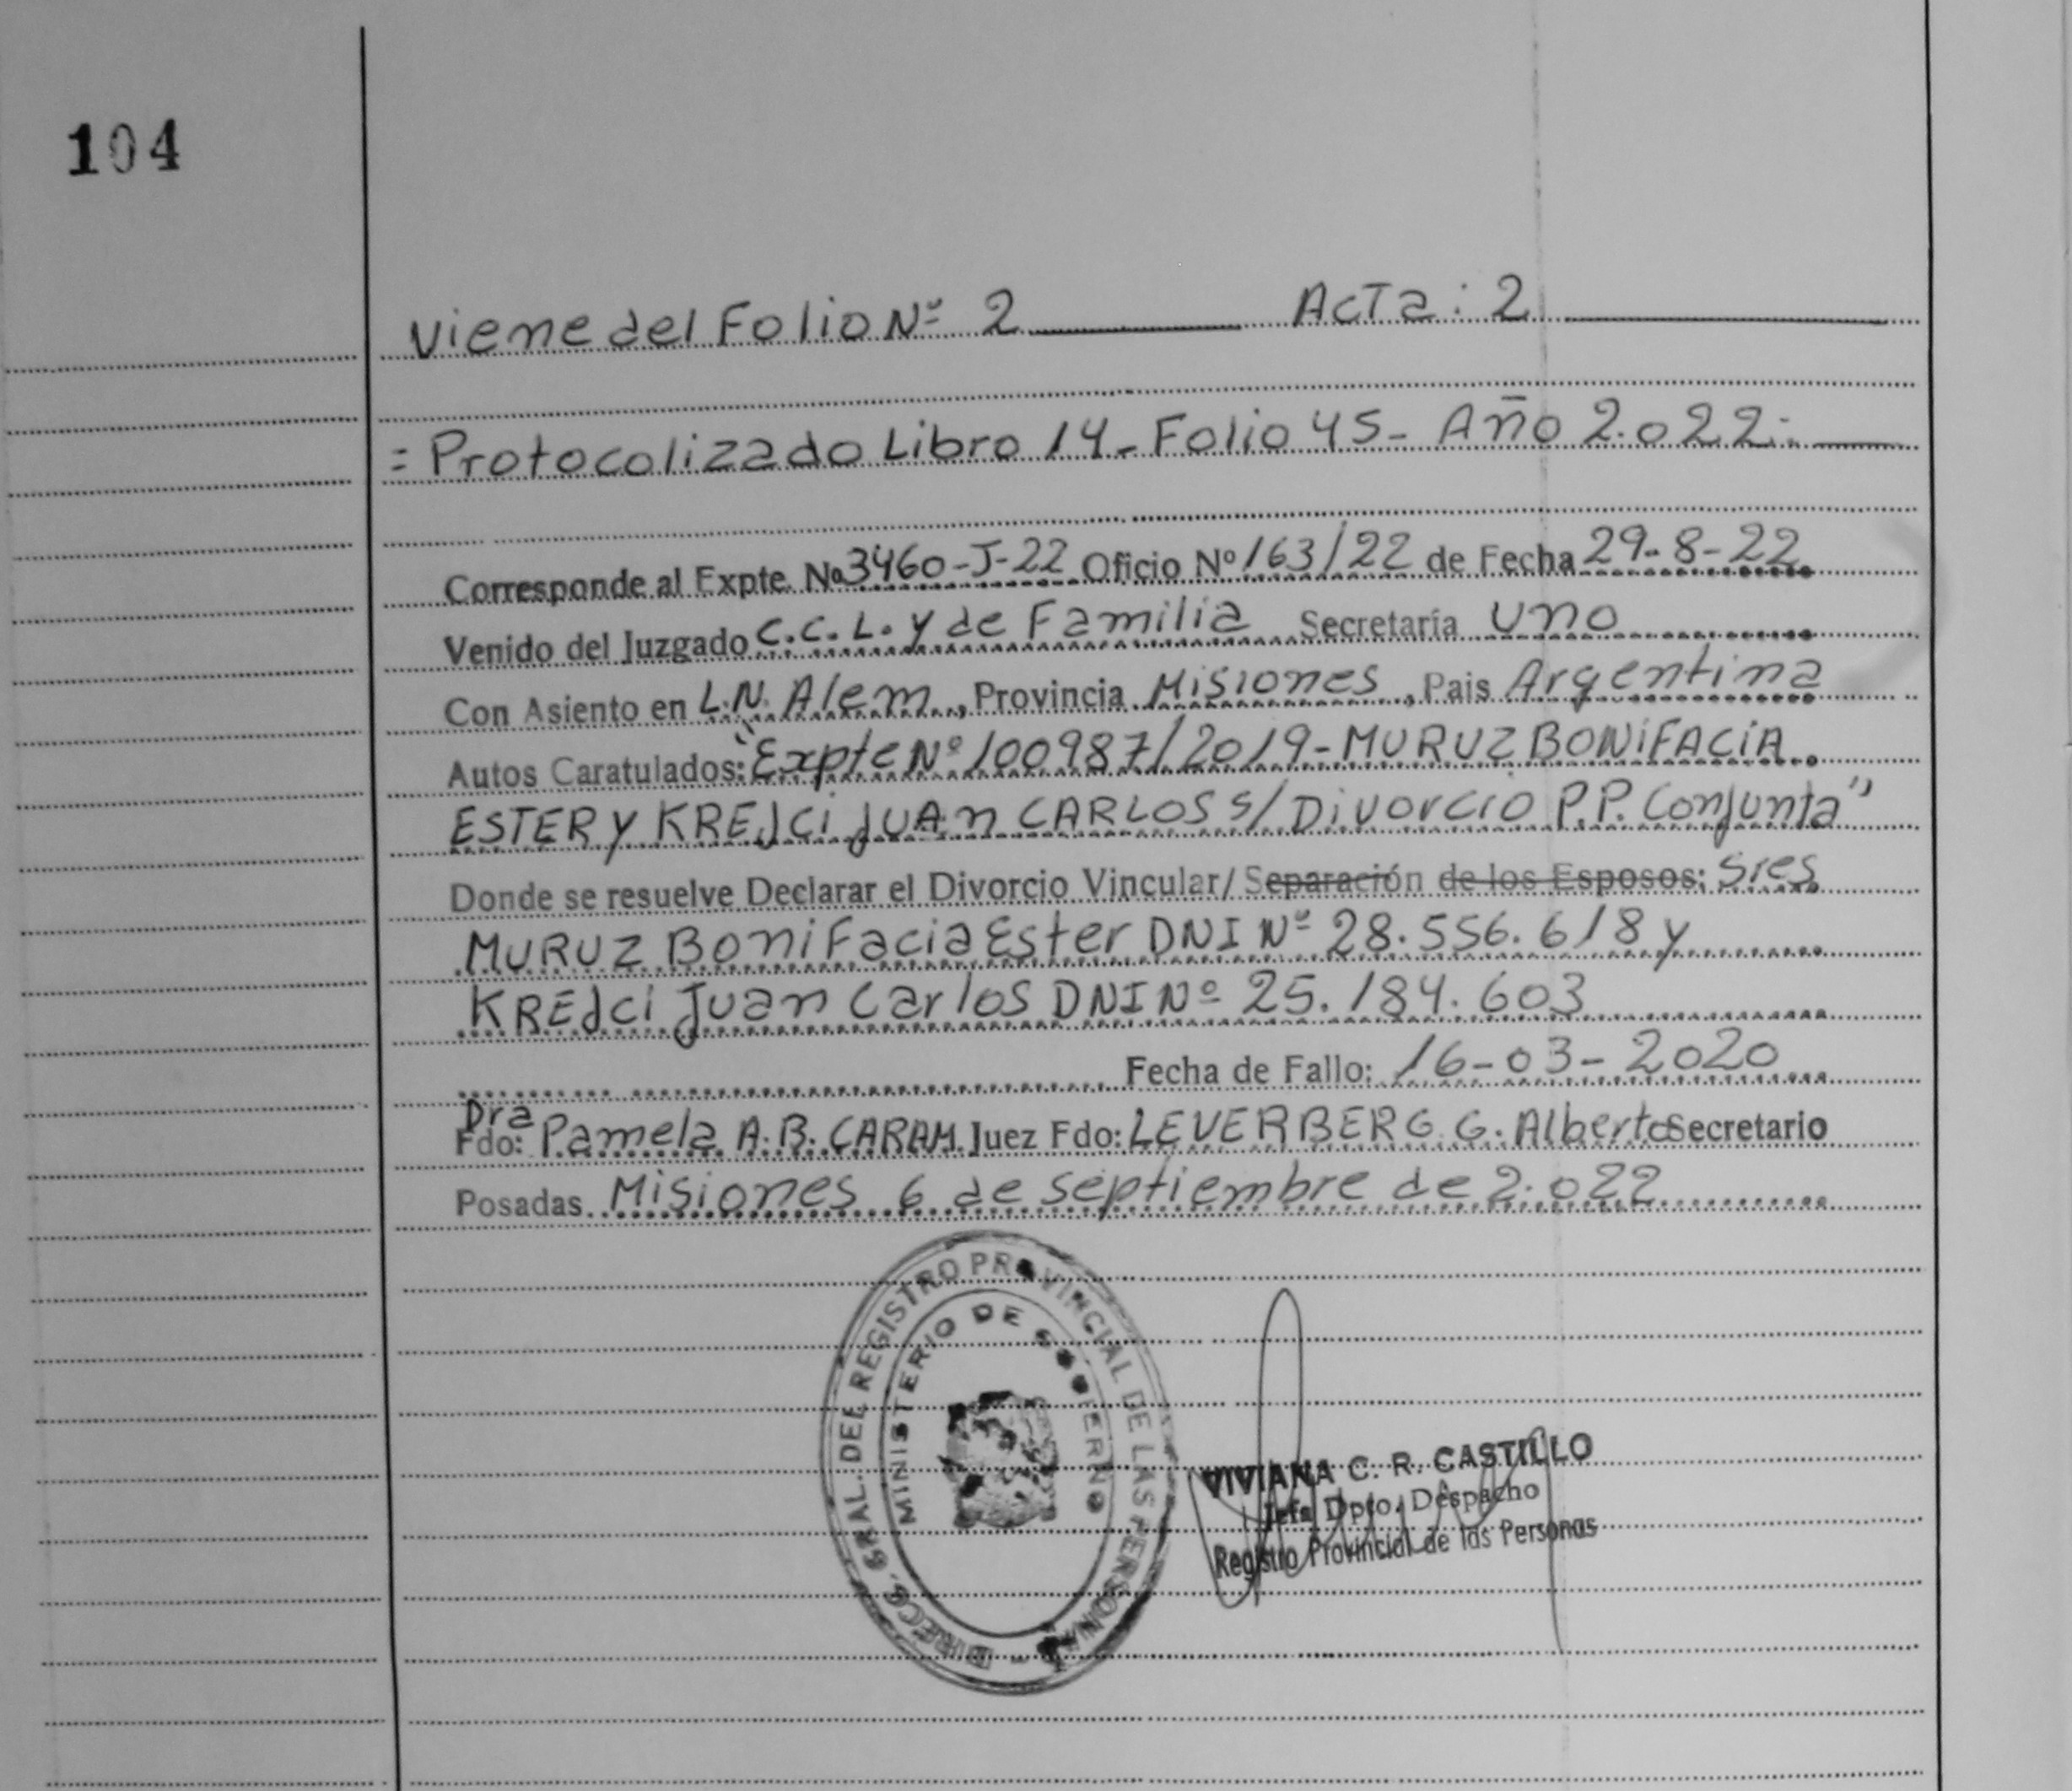 104
Viene del Folio Nº 2 Acta: 2
= Protocolizado Libro 14- Folio 45- Año 2.022-
Corresponde al Expte. Nº 3460-J-22 Oficio Nº 163/22 de Fecha 29-8-22
Venido del Juzgado C.C.L. y de Familia Secretaría uno
Con Asiento en L.N. Alem, Provincia Misiones, Pais Argentina
Autos Caratulados: "Expte Nº 100987/2019-MURUZ BONIFACIA
ESTER Y KREJCI JUAN CARLOS S/Divorcio P.P. Conjunta"
Donde se resuelve Declarar el Divorcio Vincular/ Separación de los Esposos: Sres
MURUZ Bonifacia Ester DNI Nº 28.556.618 y
KREJCI Juan Carlos DNI Nº 25.184.603
Fecha de Fallo: 16-03-2020
Dra
Fdo: Pamela A.B. CARAM. Juez Fdo: LEVERBERG G. Alberto Secretario
Posadas Misiones 6 de septiembre de 2.022
DIRECC. GRAL. DEL REGISTRO PROVINCIAL DE LAS PERSONAS
MINISTERIO DE GOBIERNO
VIVIANA C. R. CASTILLO
Jefa Dpto. Despacho
Registro Provincial de las Personas